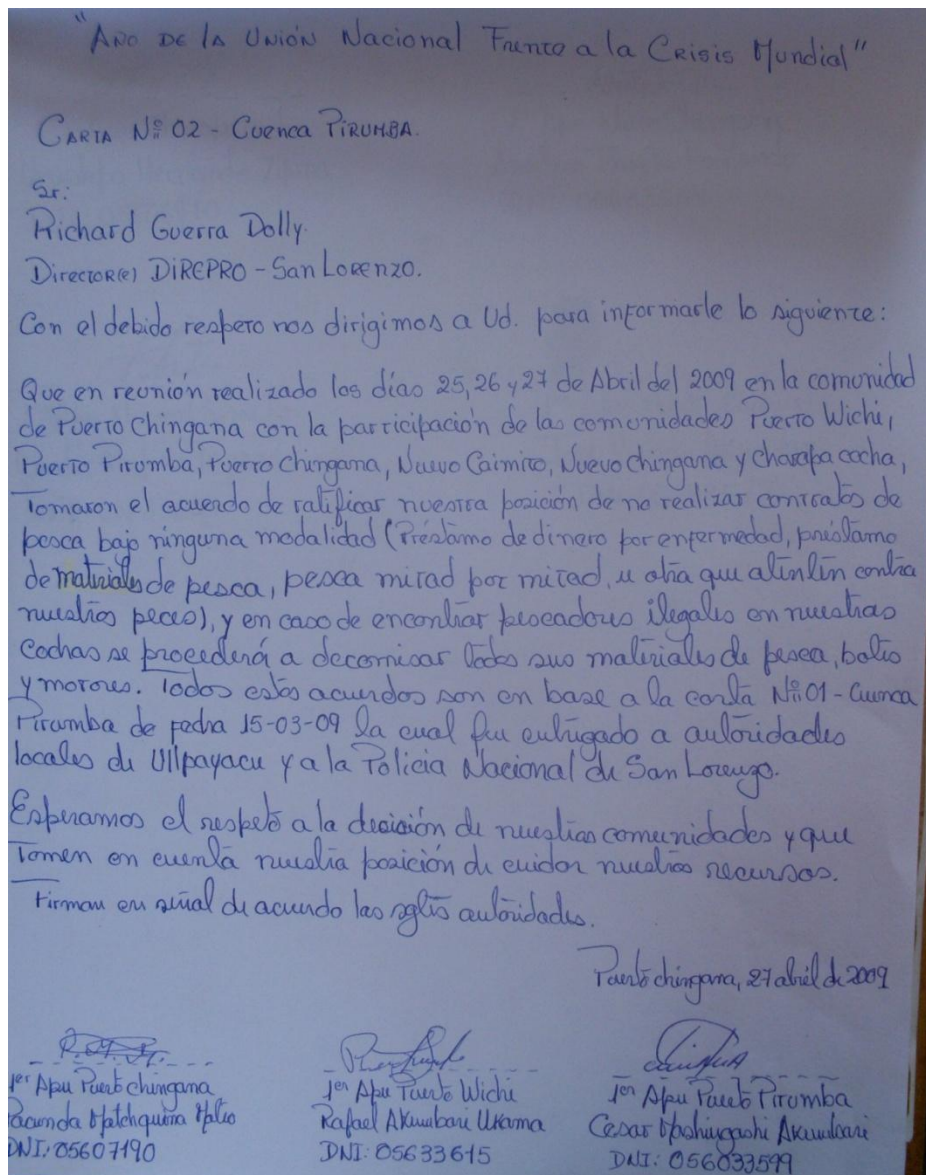 "Año de la Unión Nacional Frente a la Crisis Mundial"
Carta Nº 02 - Cuenca Pirumba.
Sr:
Richard Guerra Dolly.
Director(e) DIREPRO - San Lorenzo.
Con el debido respeto nos dirigimos a Ud. para informarle lo siguiente:
Que en reunión realizado los días 25, 26 y 27 de Abril del 2009 en la comunidad
de Puerto Chingana con la participación de las comunidades Puerto Wichi,
Puerto Pirumba, Puerto Chingana, Nuevo Caimito, Nuevo Chingana y Charapacocha,
Tomaron el acuerdo de ratificar nuestra posición de no realizar contratos de
pesca bajo ninguna modalidad (Préstamo de dinero por enfermedad, préstamo
de materiales de pesca, pesca mitad por mitad, u otra que atinten contra
nuestros peces), y en caso de encontrar pescadores ilegales en nuestras
cochas se procederá a decomisar todos sus materiales de pesca, botes
y motores. Todos estos acuerdos son en base a la carta Nº 01 - Cuenca
Pirumba de fecha 15-03-09 la cual fue entregado a autoridades
locales de Ullpayacu y a la Policía Nacional de San Lorenzo.
Esperamos el respeto a la decisión de nuestras comunidades y que
Tomen en cuenta nuestra posición de cuidar nuestros recursos.
Firman en señal de acuerdo las sgtes autoridades.
Puerto chingana, 27 abril de 2009
1er Apu Puerto chingana
DNI: 05607190
1er Apu Puerto Wichi
Rafael Akumbari Ukama
DNI: 05633615
1er Apu Puerto Pirumba
Cesar Akumbari
DNI: 056033599